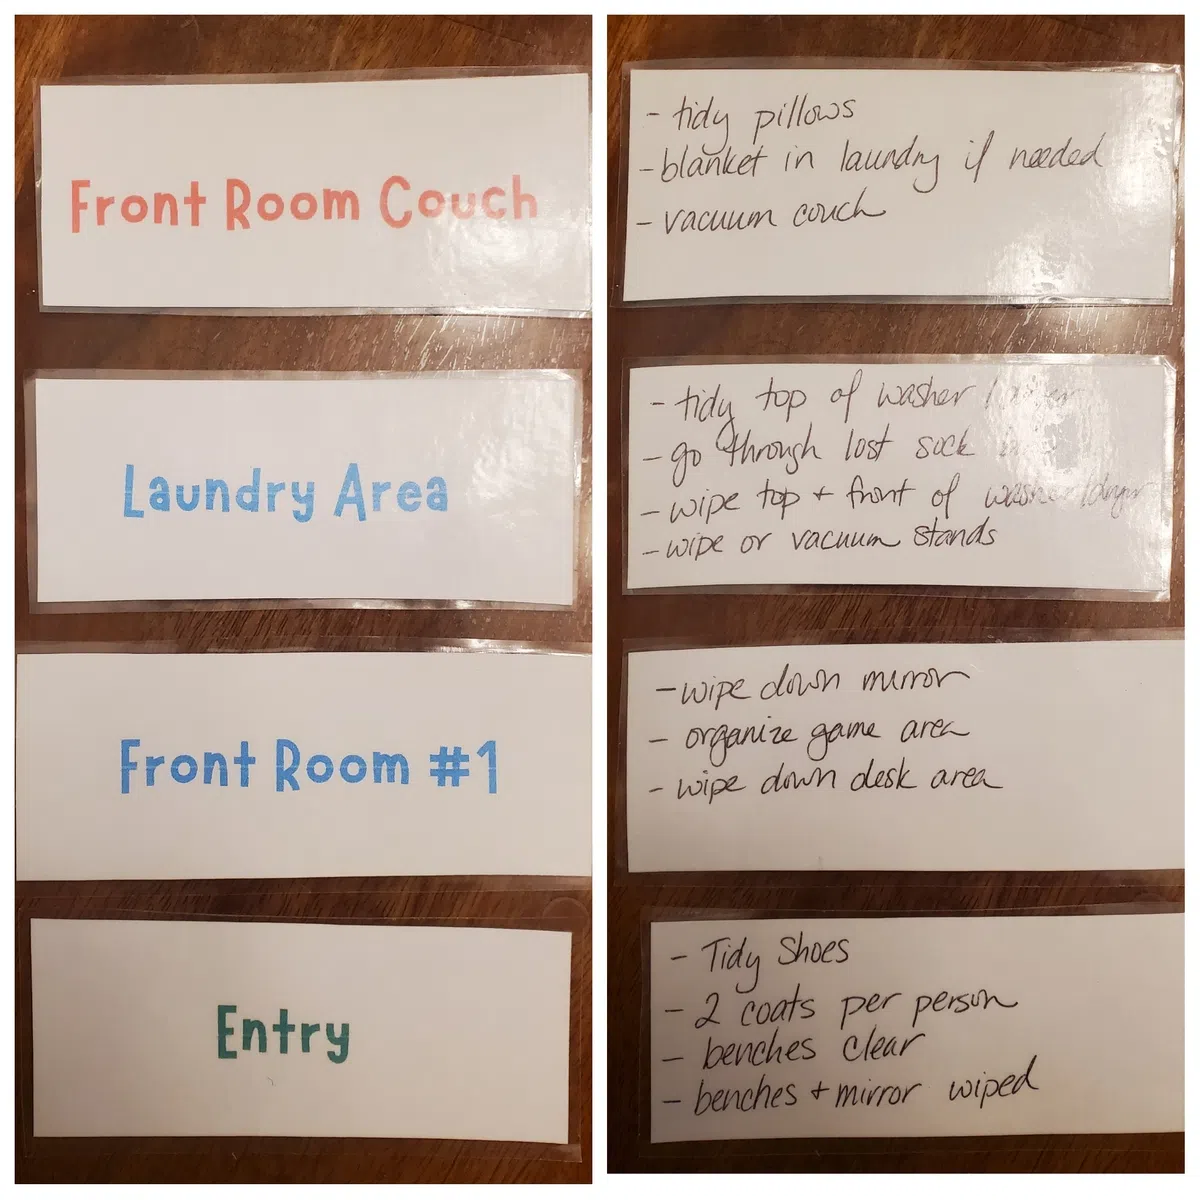 Front Room Couch
Laundry Area
Front Room #1
Entry
- tidy pillows
- blanket in laundry if needed
- vacuum couch
- tidy top of washer /
- go through lost sock
- wipe top + front of washer/dryer
- wipe or vacuum stands
- wipe down mirror
- organize game area
- wipe down desk area
- Tidy Shoes
- 2 coats per person
- benches clear
- benches + mirror wiped